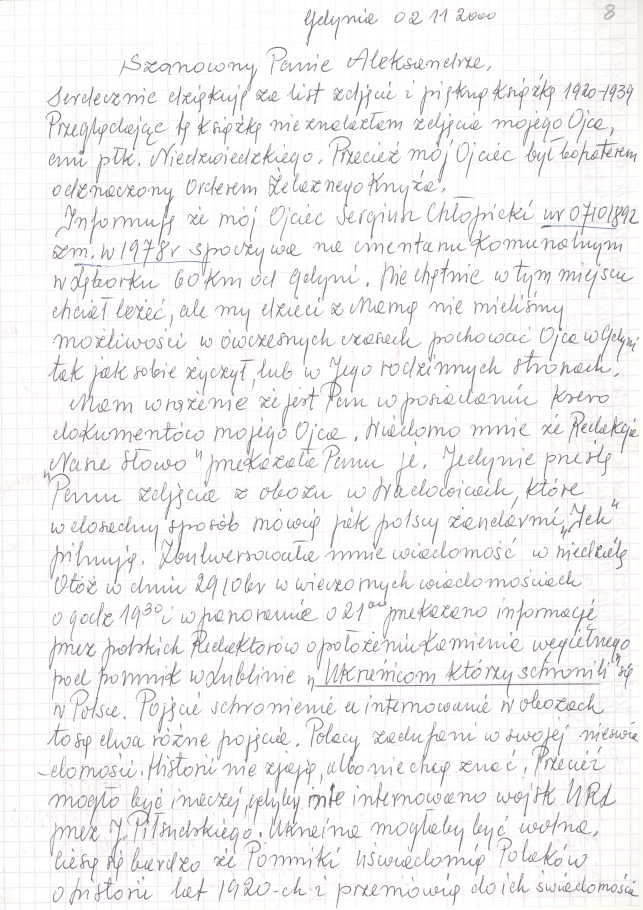 Gdynia 02 11 2000
8
Szanowny Panie Aleksandrze,
Serdecznie dziękuję za list zdjęcie i piękną książkę 1920-1939
Przeglądając tę książkę nie znalazłam zdjęcia mojego Ojca,
ani płk. Niedzwiedzkiego. Przecież mój Ojciec był bohaterem
odznaczony Orderem Żelaznego Krzyża.
Informuję że mój Ojciec Sergiusz Chłopicki ur 07101892
zm. w 1978 r spoczywa na cmentarzu Komunalnym
w Lęborku 60 km od Gdyni. Nie chętnie w tym miejscu
chciał leżeć, ale my dzieci z Mamą nie mieliśmy
możliwości w ówczesnych czasach pochować Ojca w Gdyni
tak jak sobie życzył, lub w Jego rodzinnych stronach.
Mam wrażenie że jest Pan w posiadaniu ksero
dokumentów mojego Ojca. Wiadomo mnie że Redakcja
"Nasze Słowo" przekazała Panu je. Jedynie prześlę
Panu zdjęcia z obozu w Wadowicach, które
w dosadny sposób mówią jak polscy żandarmi "Ich"
pilnują. Zbulwersowała mnie wiadomość w niedzielę
Otóż w dniu 29 10 br w wieczornych wiadomościach
o godz 19 30 i w panoramie o 21 00 przekazano informację
przez polskich Redaktorów o położeniu Kamienia węgielnego
pod pomnik w Lublinie "Ukraińcom którzy schronili" się
w Polsce. Pojęcie schronienie a internowanie w obozach
to są dwa różne pojęcia. Polacy zadufani w swojej nieświa
-domości. Historii nie znają, albo nie chcą znać. Przecież
mogło być inaczej, gdyby nie internowano wojsk URL
przez J. Piłsudskiego. Ukraina mogłaby być wolna.
Cieszę się bardzo że Pomniki uświadomią Polaków
o historii lat 1920-ch i przemówią do ich świadomości